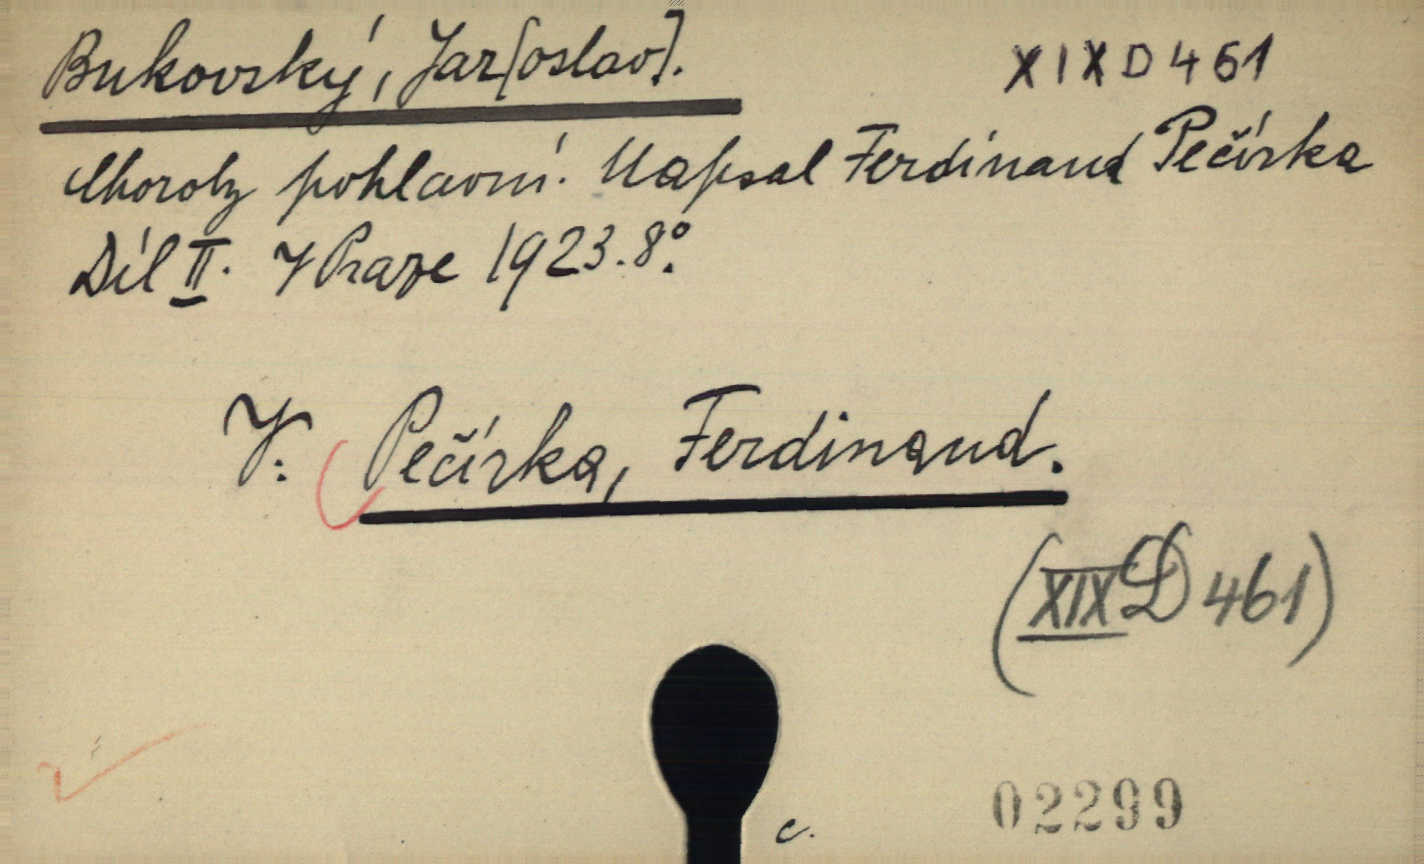 Bukovský, Jar[oslav].
XIX D 461
Choroby pohlavní. Napsal Ferdinand Pečírka
Díl II. V Praze 1923. 8°.
V: Pečírka, Ferdinand.
(XIX D 461)
02299
c.